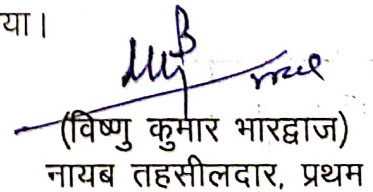 या।
(विष्णु कुमार भारद्वाज)
नायब तहसीलदार, प्रथम